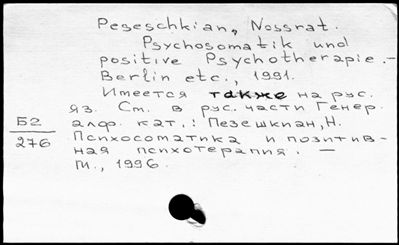 Peseschkian, Nossrat.
Psychosomatik und
positive Psychotherapie. -
Berlin etc., 1991.
Имеется также на рус.
яз. См. в рус. части Генер.
алф. кат.: Пезешкиан, Н.
Психосоматика и позитив-
ная психотерапия. —
М., 1996.
Б2
276